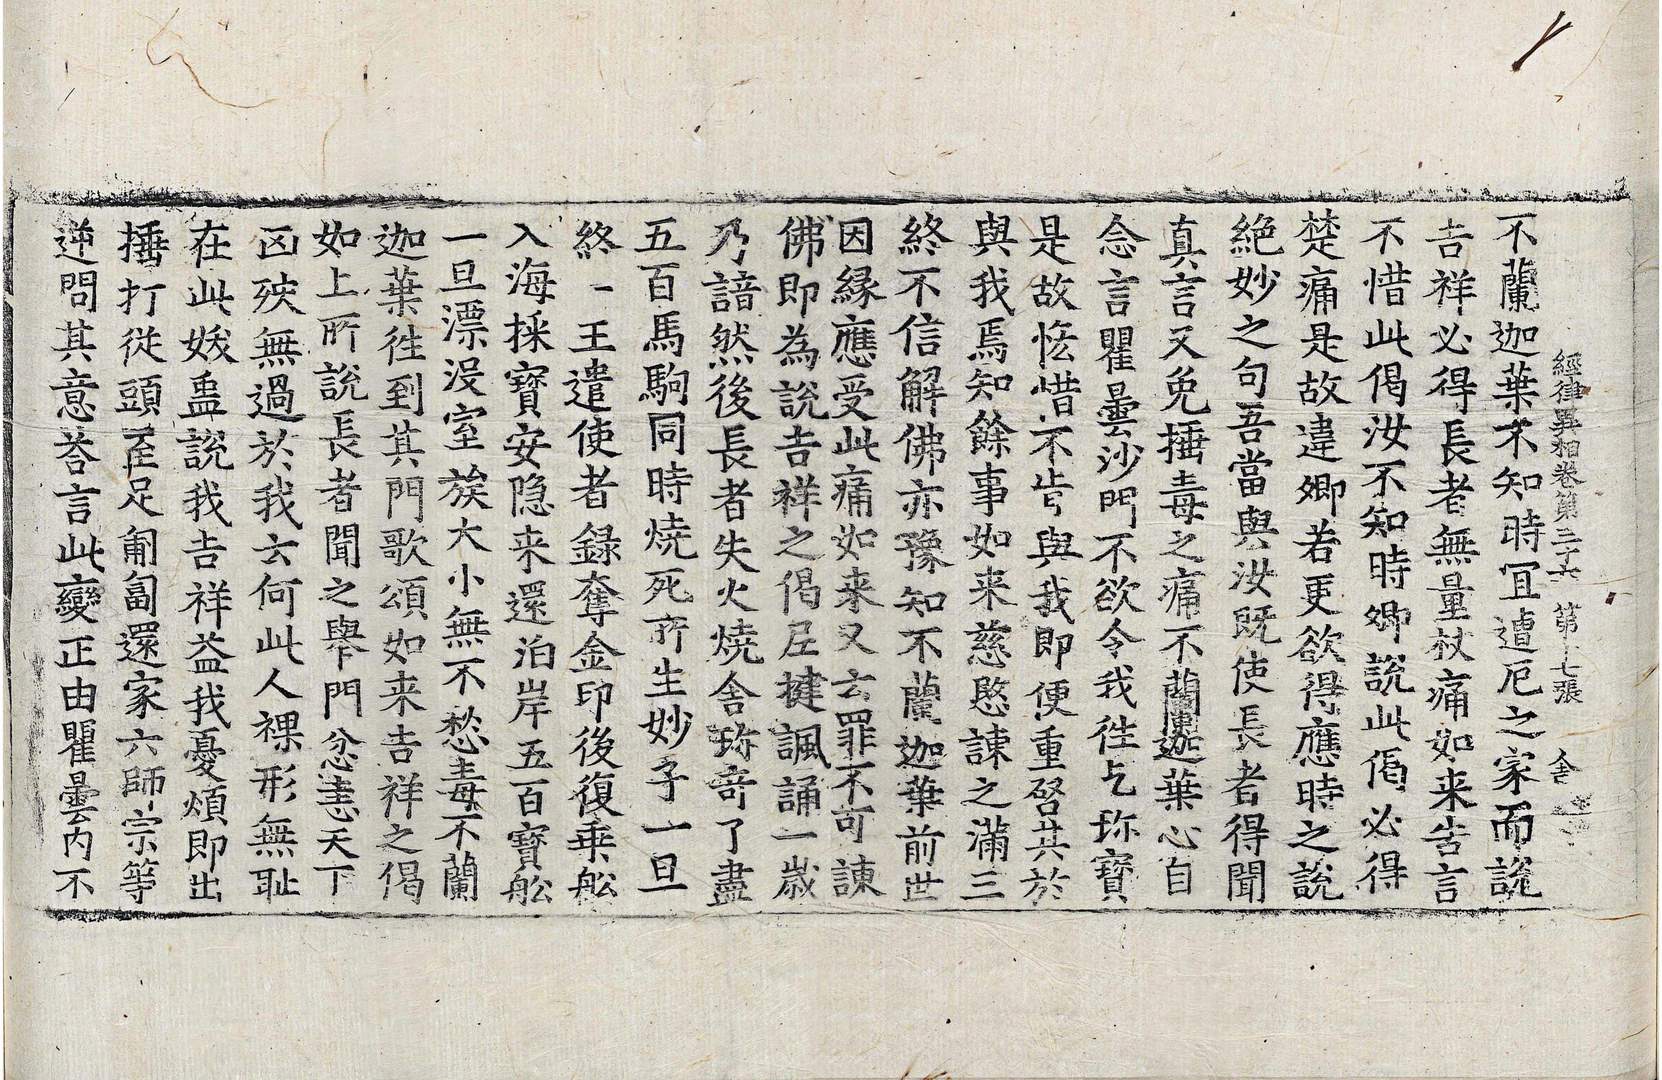 經律異相卷第三十六 第十七張 舍
不蘭迦葉不知時宜遭厄之家而說
吉祥必得長者無量杖痛如来告言
不惜此偈汝不知時卿說此偈必得
楚痛是故違卿若更欲得應時之說
絕妙之句吾當與汝既使長者得聞
真言又免捶毒之痛不蘭迦葉心自
念言瞿曇沙門不欲令我徃乞珎寶
是故恡惜不肯與我即便重啓其於
與我焉知餘事如来慈愍諫之滿三
終不信解佛亦豫知不蘭迦葉前世
因縁應受此痛如来又云罪不可諫
佛即為說吉祥之偈尼揵諷誦一歲
乃諳然後長者失火燒舍珎竒了盡
五百馬駒同時燒死所生妙子一旦
終亡王遣使者録奪金印後復乗舩
入海採寶安隐来還泊岸五百寶舩
一旦漂没室族大小無不愁毒不蘭
迦葉徃到其門歌頌如来吉祥之偈
如上所說長者聞之舉門忿恚天下
凶殃無過於我云何此人裸形無耻
在此妭蠱說我吉祥益我憂煩即出
捶打從頭至足匍匐還家六師宗等
逆問其意荅言此變正由瞿曇内不